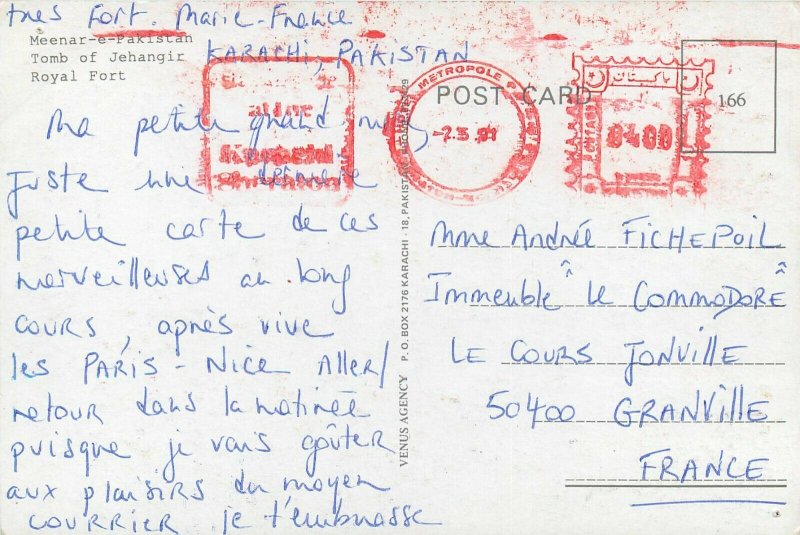 très Fort. Marie-France
KARACHI, PAKISTAN
Meenar-e-Pakistan
Tomb of Jehangir
Royal Fort
POST CARD
166
METROPOLE
-2.5.91
پاکستان
0400
Ma petite grand
Juste une dernière
petite carte de ces
merveilleuses au long
cours, après vive
les PARIS-NICE Aller/
retour dans la matinée
puisque je vais goûter
aux plaisirs du moyen
COURRIER. je t'embrasse
VENUS AGENCY P.O. BOX 2176 KARACHI - 18, PAKISTAN
Mme Andrée FICHEPOIL
Immeuble "Le COMMODORE"
LE COURS JONVILLE
50400 GRANVILLE
FRANCE